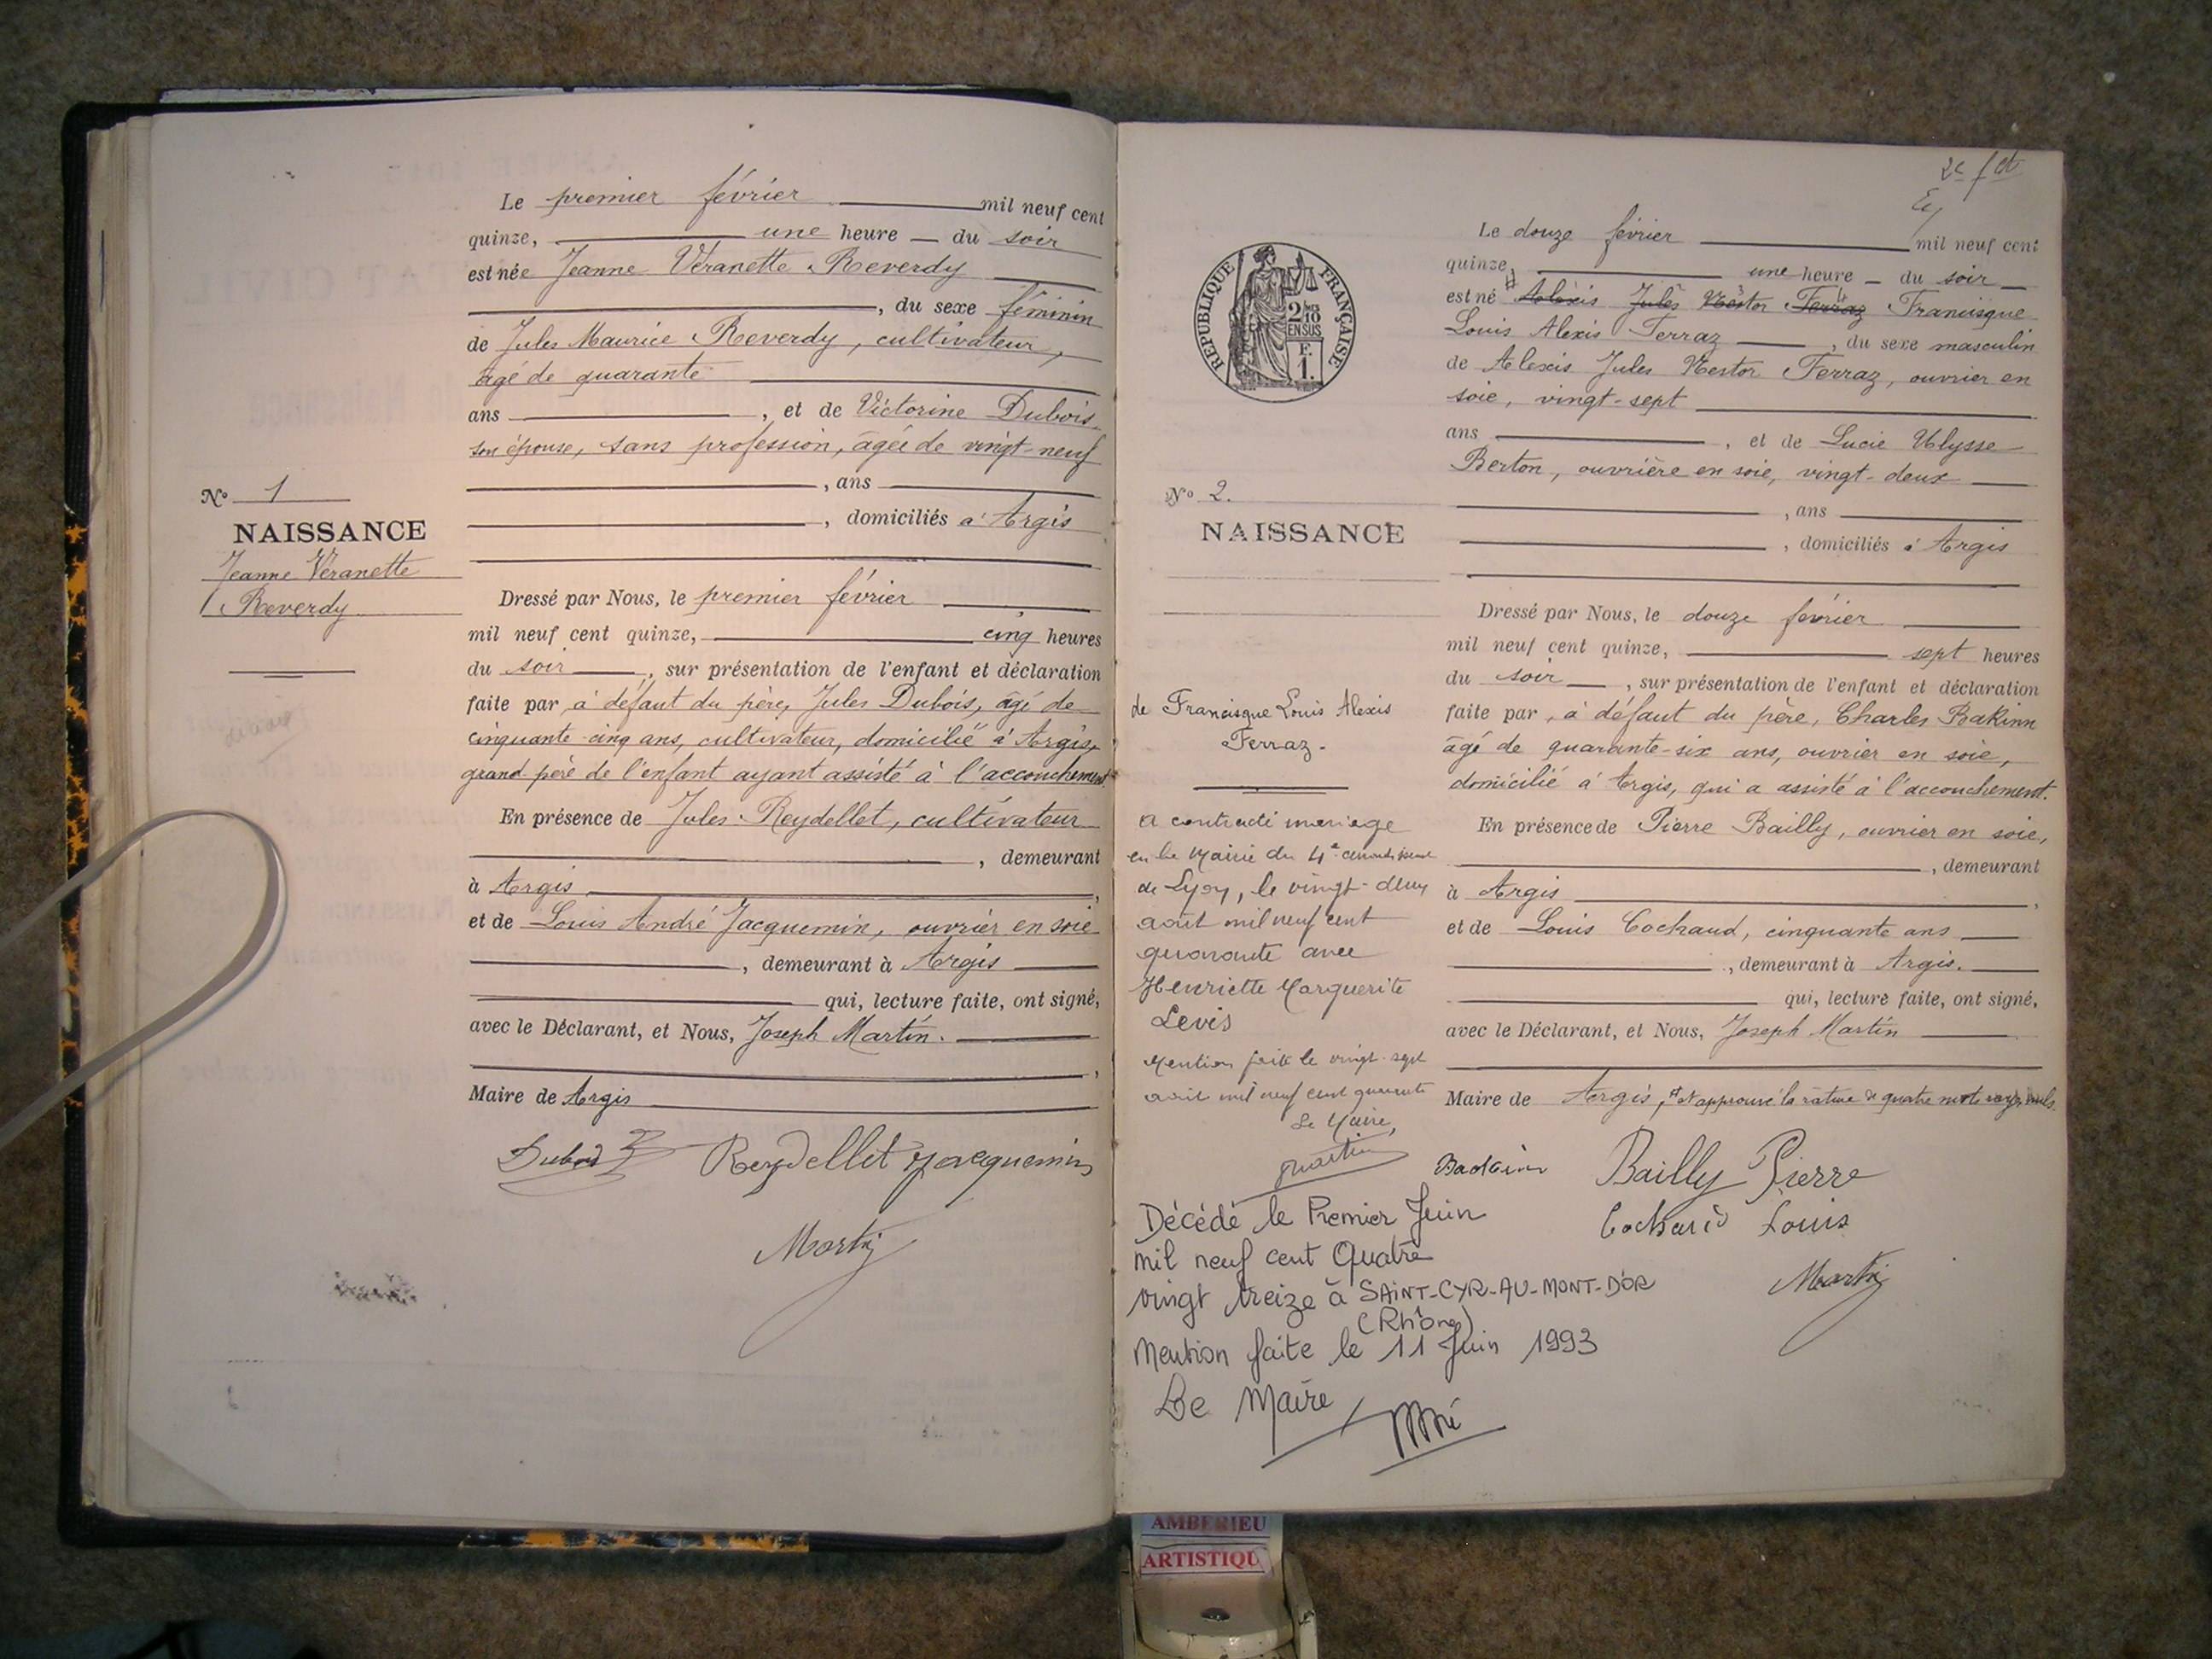 Le premier février mil neuf cent
quinze, une heure du soir
est née Jeanne Véranette Reverdy
, du sexe féminin
de Jules Maurice Reverdy, cultivateur,
âgé de quarante
ans , et de Victorine Dubois
son épouse, sans profession, âgée de vingt-neuf
, ans
, domiciliés à Argis
N° 1
NAISSANCE
Jeanne Véranette
Reverdy
Dressé par Nous, le premier février
mil neuf cent quinze, cinq heures
du soir , sur présentation de l'enfant et déclaration
faite par, à défaut du père, Jules Dubois, âgé de
cinquante-cinq ans, cultivateur, domicilié à Argis,
grand père de l'enfant ayant assisté à l'accouchement
En présence de Jules Reydellet, cultivateur
, demeurant
à Argis ,
et de Louis André Jacquemin, ouvrier en soie
, demeurant à Argis
qui, lecture faite, ont signé,
avec le Déclarant, et Nous, Joseph Martin.
,
Maire de Argis
Dubois Reydellet Jacquemin
Martin
2e fet
RÉPUBLIQUE FRANÇAISE
2/10
EN SUS
F.
1.
Le douze février mil neuf cent
quinze, une heure du soir
est né Alexis Jules Nestor Ferraz Francisque
Louis Alexis Ferraz , du sexe masculin
de Alexis Jules Nestor Ferraz, ouvrier en
soie, vingt-sept
ans , et de Lucie Ulysse
Berton, ouvrière en soie, vingt-deux
, ans
, domiciliés à Argis
N° 2.
NAISSANCE
de Francisque Louis Alexis
Ferraz.
Dressé par Nous, le douze février
mil neuf cent quinze, sept heures
du soir , sur présentation de l'enfant et déclaration
faite par, à défaut du père, Charles Bakinn
âgé de quarante-six ans, ouvrier en soie,
domicilié à Argis, qui a assisté à l'accouchement.
En présence de Pierre Bailly, ouvrier en soie,
, demeurant
à Argis ,
et de Louis Cochaud, cinquante ans
, demeurant à Argis.
qui, lecture faite, ont signé,
avec le Déclarant, et Nous, Joseph Martin
Maire de Argis, et approuvé la rature de quatre mots rayés nuls.
Bailly Pierre
Louis
Martin
a contracté mariage
en la Mairie du 4e arrondissement
de Lyon, le vingt-deux
août mil neuf cent
quarante avec
Henriette Marguerite
Levis
Mention faite le vingt-sept
août mil neuf cent quarante
Le Maire,
Martin
Décédé le Premier Juin
mil neuf cent Quatre
vingt treize à SAINT-CYR-AU-MONT-D'OR
(Rhône)
Mention faite le 11 Juin 1993
Le Maire
AMBERIEU
ARTISTIQU